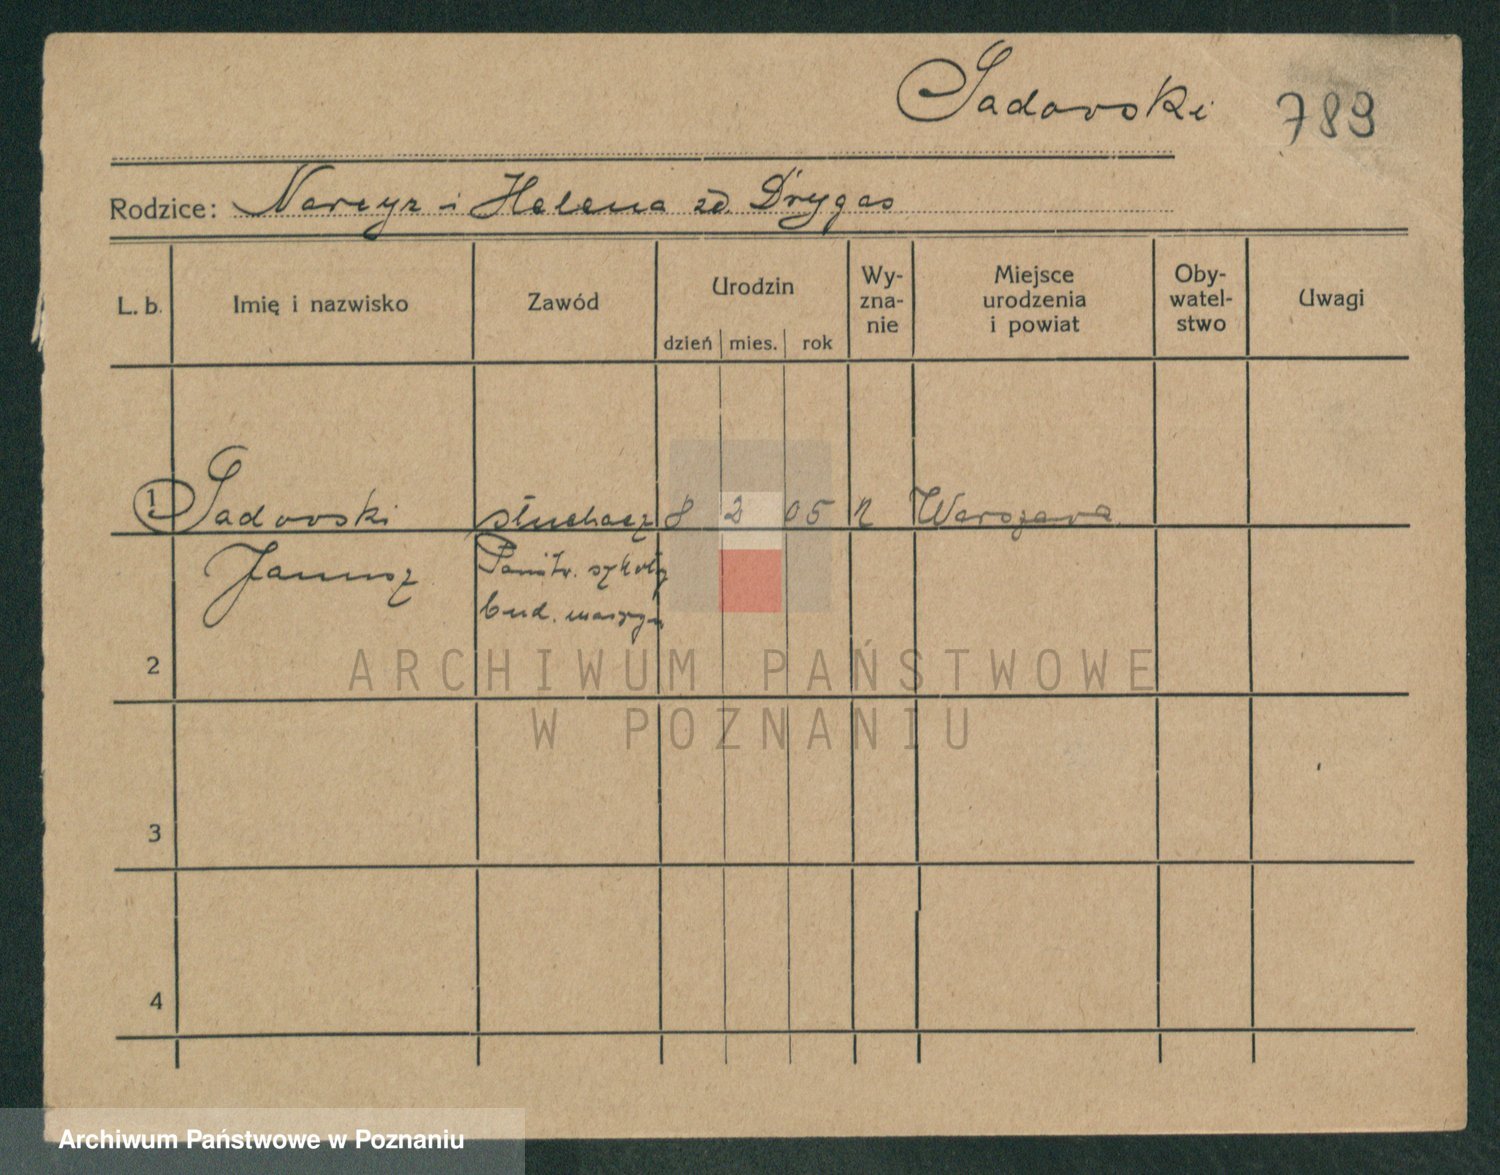 Sadowski 789
Rodzice: Narcyz i Helena zd. Drygas
L. b. Imię i nazwisko Zawód Urodzin dzień mies. rok Wy-zna-nie Miejsce urodzenia i powiat Oby-watel-stwo Uwagi
1 Sadowski słuchacz 8 2 05 r Warszawa
Janusz Państw. szkoły
bud. maszyn
2
ARCHIWUM PAŃSTWOWE
W POZNANIU
3
4
Archiwum Państwowe w Poznaniu